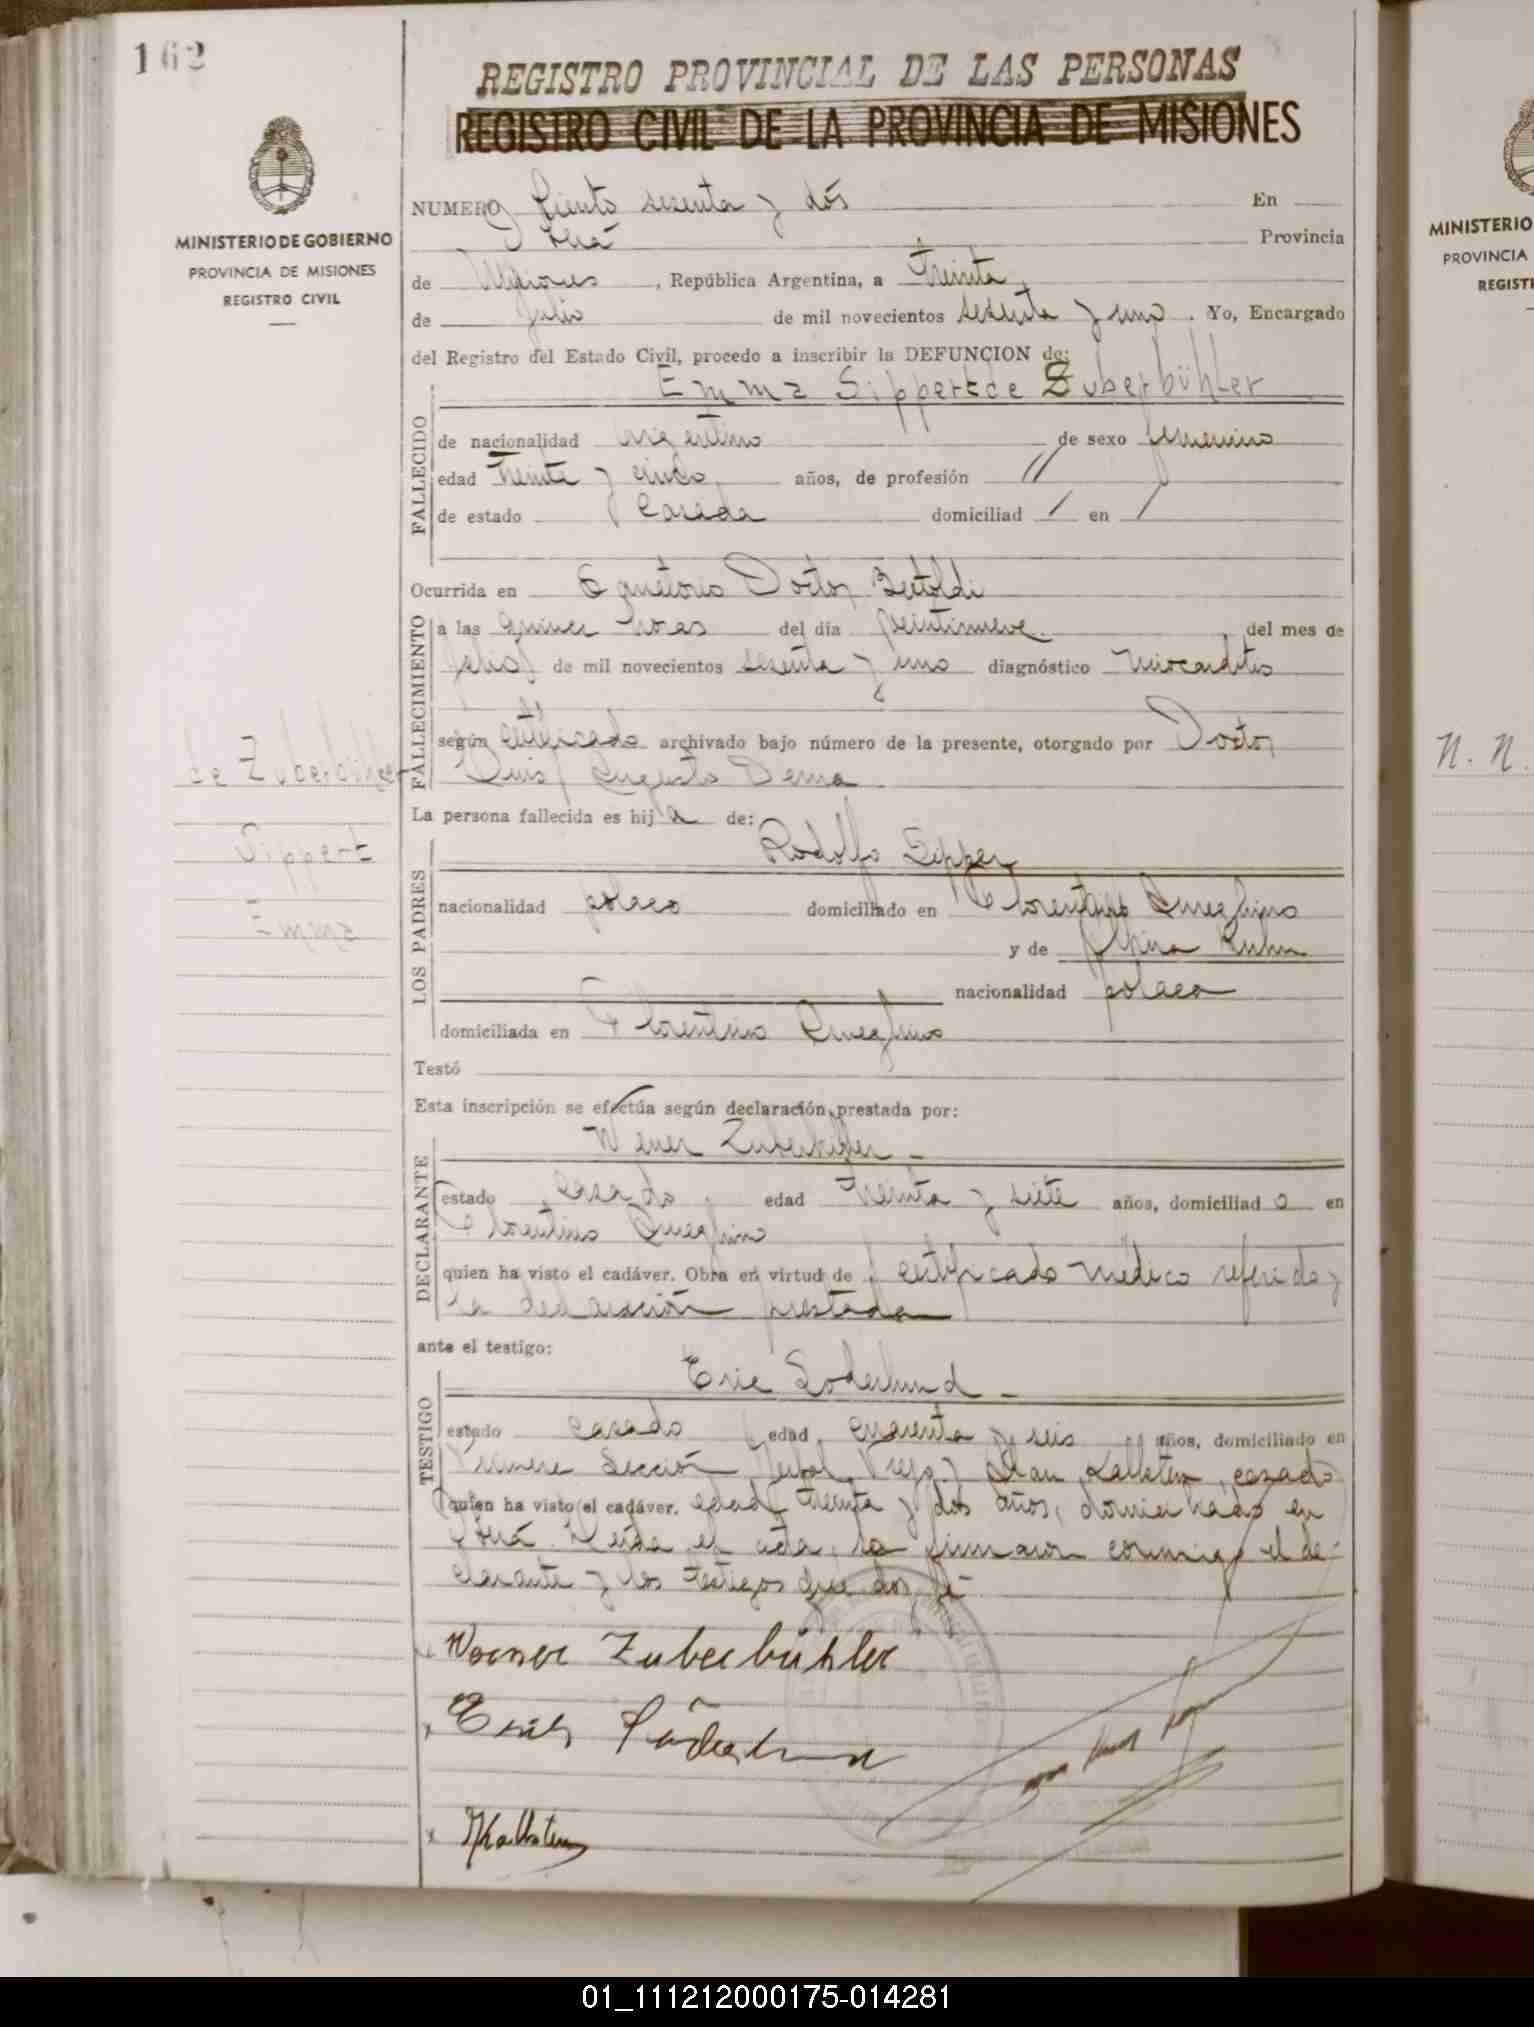 162
REGISTRO PROVINCIAL DE LAS PERSONAS
REGISTRO CIVIL DE LA PROVINCIA DE MISIONES
MINISTERIO DE GOBIERNO
PROVINCIA DE MISIONES
REGISTRO CIVIL
NUMERO Ciento sesenta y dós En
Oberá Provincia
de Misiones, República Argentina, a treinta
de Julio de mil novecientos sesenta y uno. Yo, Encargado
del Registro del Estado Civil, procedo a inscribir la DEFUNCION de:
Emma Sippert de Zuberbühler
FALLECIDO
de nacionalidad argentino de sexo femenino
edad treinta y cinco años, de profesión //
de estado Casada domiciliad / en /
Ocurrida en Sanatorio Doctor Bertoldi
FALLECIMIENTO
a las quince horas del día veintinueve del mes de
Julio de mil novecientos sesenta y uno diagnóstico miocarditis
según certificado archivado bajo número de la presente, otorgado por Doctor
Luis Augusto Derna
de Zuberbühler
Sippert
Emma
La persona fallecida es hija de:
LOS PADRES
Rodolfo Sipper
nacionalidad polaco domiciliado en Florentino Ameghino
y de Kuhn
nacionalidad polaca
domiciliada en Florentino Ameghino
Testó
Esta inscripción se efectúa según declaración prestada por:
DECLARANTE
Werner Zuberbühler -
estado casado, edad treinta y siete años, domiciliado en
Florentino Ameghino
quien ha visto el cadáver. Obra en virtud de certificado médico referido y
la declaración prestada
ante el testigo:
TESTIGO
Eric Soderlund -
estado casado edad cuarenta y seis años, domiciliado en
Primera Sección Yerbal Viejo y Juan Kallsten, casado
quien ha visto el cadáver. edad treinta y dos años, domiciliado en
Oberá. Leída el acta, la firmaron conmigo el de-
clarante y los testigos que doy fé
Werner Zuberbühler
Erich Söderlund
Kallsten
MINISTERIO
PROVINCIA
REGIST
N. N.
01_111212000175-014281